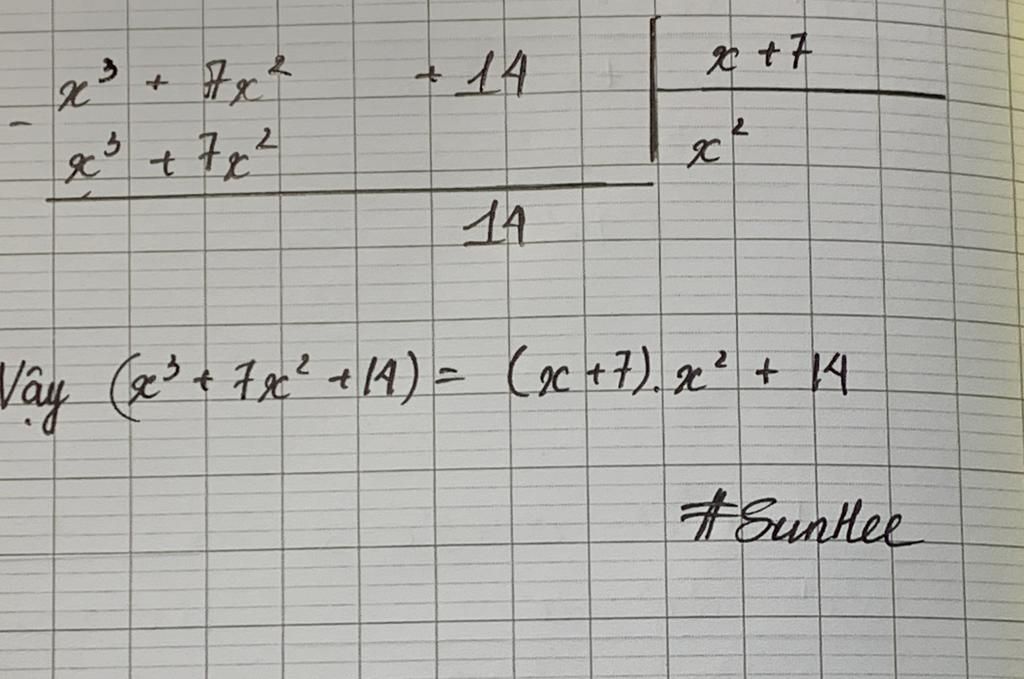 x³ + 7x² + 14 | x + 7
- x³ + 7x² | x²
14
Vậy (x³ + 7x² + 14) = (x + 7). x² + 14
#SunHee